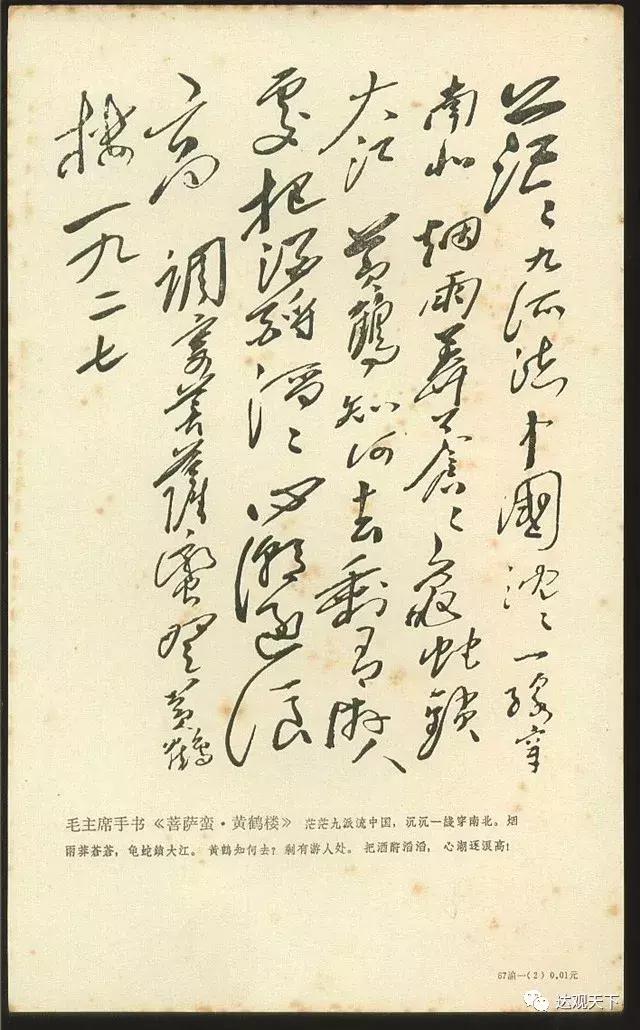 茫〻九派流中國沈〻一線穿
南北 烟雨莽蒼〻龜蛇鎖
大江 黄鶴知何去剩有游人
處把酒酹滔〻心潮逐浪
高 調寄菩薩蠻登黄鶴
樓 一九二七
毛主席手书《菩萨蛮·黄鹤楼》 茫茫九派流中国，沉沉一线穿南北。烟
雨莽苍苍，龟蛇鎖大江。黄鹤知何去？剩有游人处。把酒酹滔滔，心潮逐浪高！
67渝—(2) 0.01元
达观天下